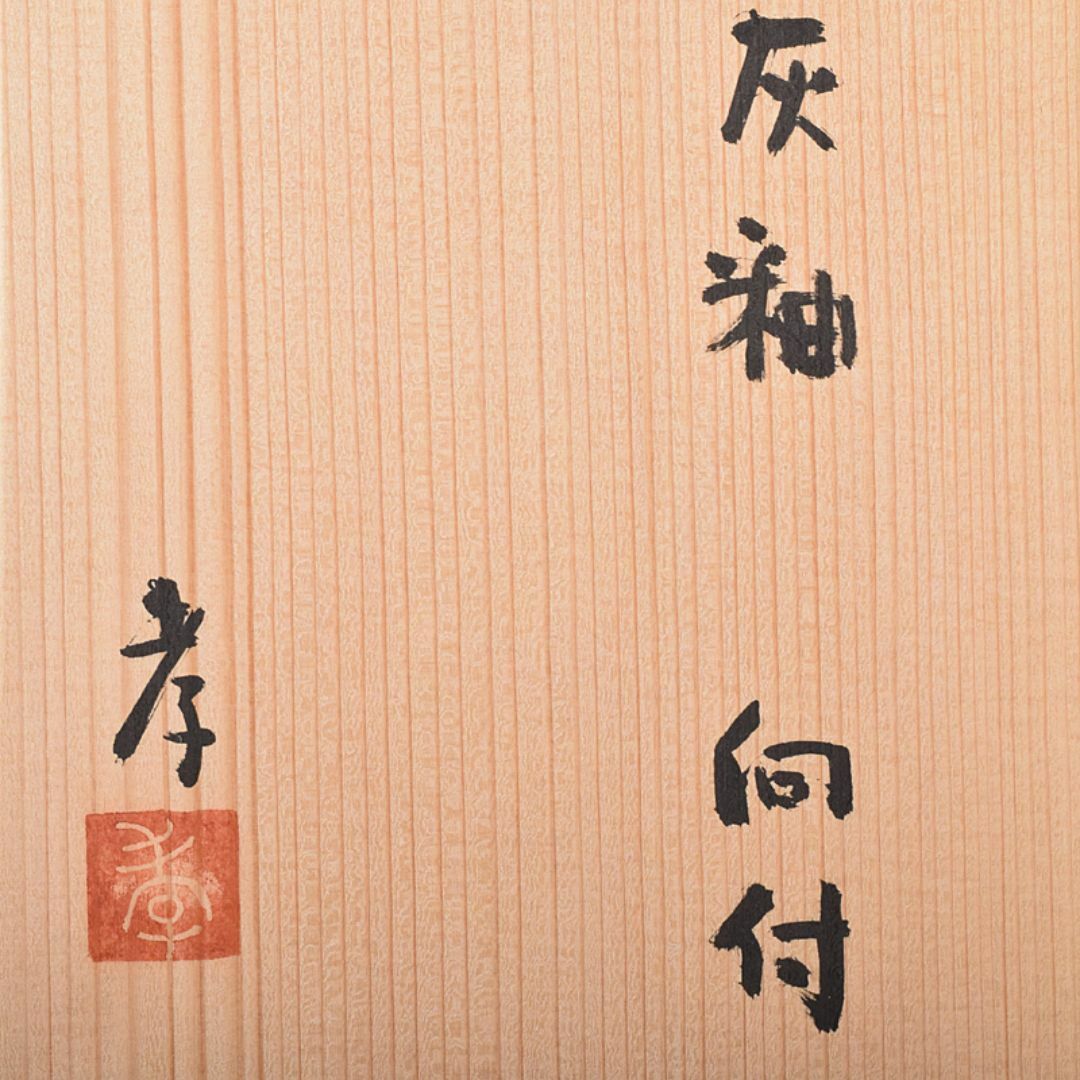 灰釉 向付
孝
孝